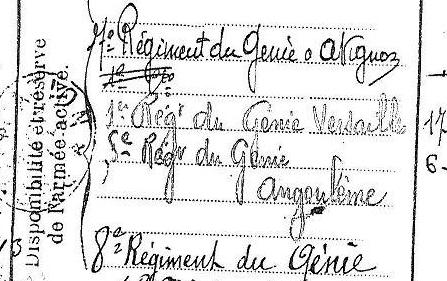 Disponibilité et réserve
de l'armée active.
7e Régiment du Génie à Avignon
1er Régt du Génie Versaille
5e Régt du Génie
Angoulème
8e Régiment du Génie
17
6-